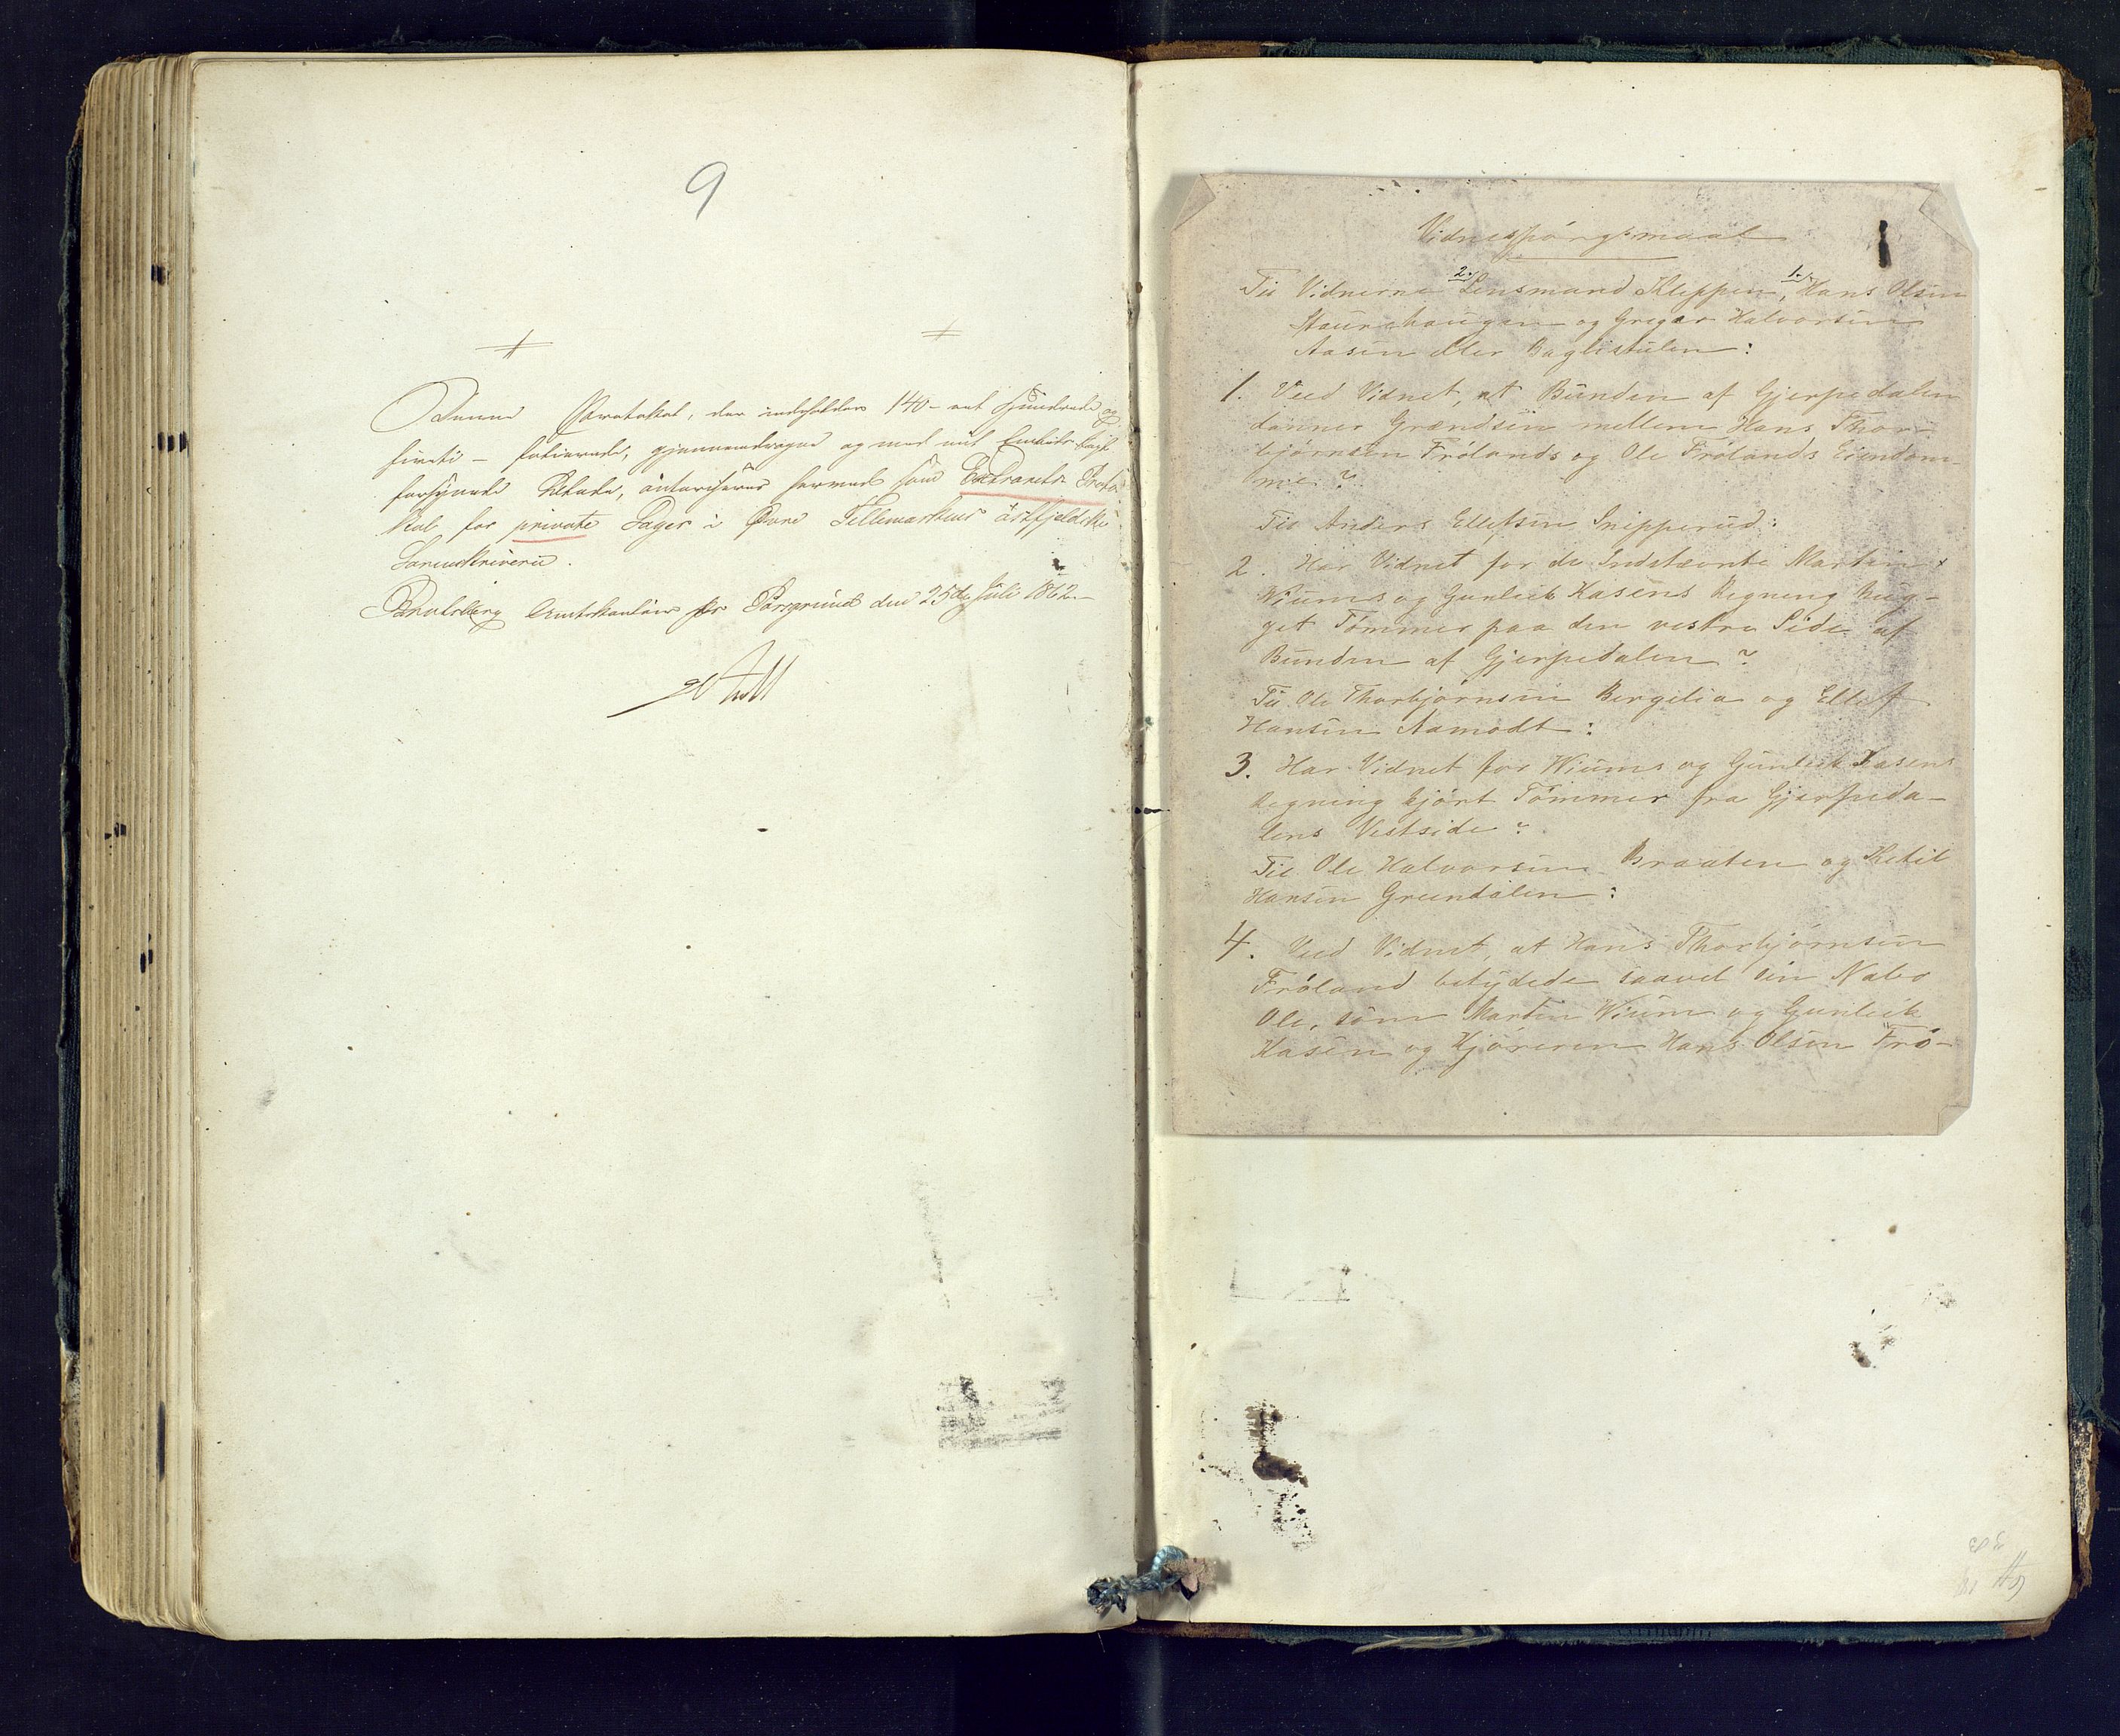 9
Denne Protokol, der indeholder 140 - eet Hundrede og
fireti - folierede, gjennemdragne og med mit Embeds Segl
forsynede Blade, autoriseres hermed som Extraretts Proto
kol for private Sager i Øvre Tellemarkens østfjeldske
Sorenskriverie.
Bratsberg Amtskontoir pr Porsgrund den 25de Juli 1862.
Aall
Vidnespørgsmaal
Til Vidnerne 2. Lensmand Kleppen, 1. Hans Olsen
Staurehaugen og Gregar Halvorsen
Aasen eller Baglistulen:
1. Veed Vidnet, at Bunden af Gjerpedalen
danner Grændsen mellem Hans Thor-
bjørnsen Frølands og Ole Frølands Eiendom-
me?
Til Anders Ellefsen Snipperud:
2. Har Vidnet for de Indstevnte Martin
Wiums og Gunleik Kasens Regning hug-
get Tømmer paa den vestre Side af
Bunden af Gjerpedalen?
Til Ole Thorbjørnsen Bergelia og Ellef
Hansen Aamodt:
3. Har Vidnet for Wiums og Gunleik Kasens
Regning kjørt Tømmer fra Gjerpeda-
lens Vestside?
Til Ole Halvorsen Braaten og Ketil
Hansen Grøndalen:
4. Veed Vidnet, at Hans Thorbjørnsen
Frøland betydede saavel sin Nabo
Ole, som Martin Wium og Gunleik
Kasen og Kjøreren Hans Olsen Frø-